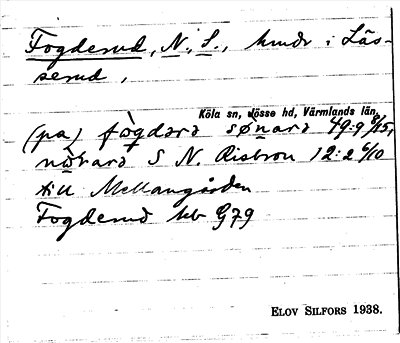 Fogderud, N., S., hmdr i Läs-
serud,
Köla sn, Jösse hd, Värmlands län.
(pa) fògdərə sønarə 49:9 8/15,
nòrarə S N. Risbron 12:2 6/10
till Mellangården
Fogderud kb G79
ELOV SILFORS 1938.